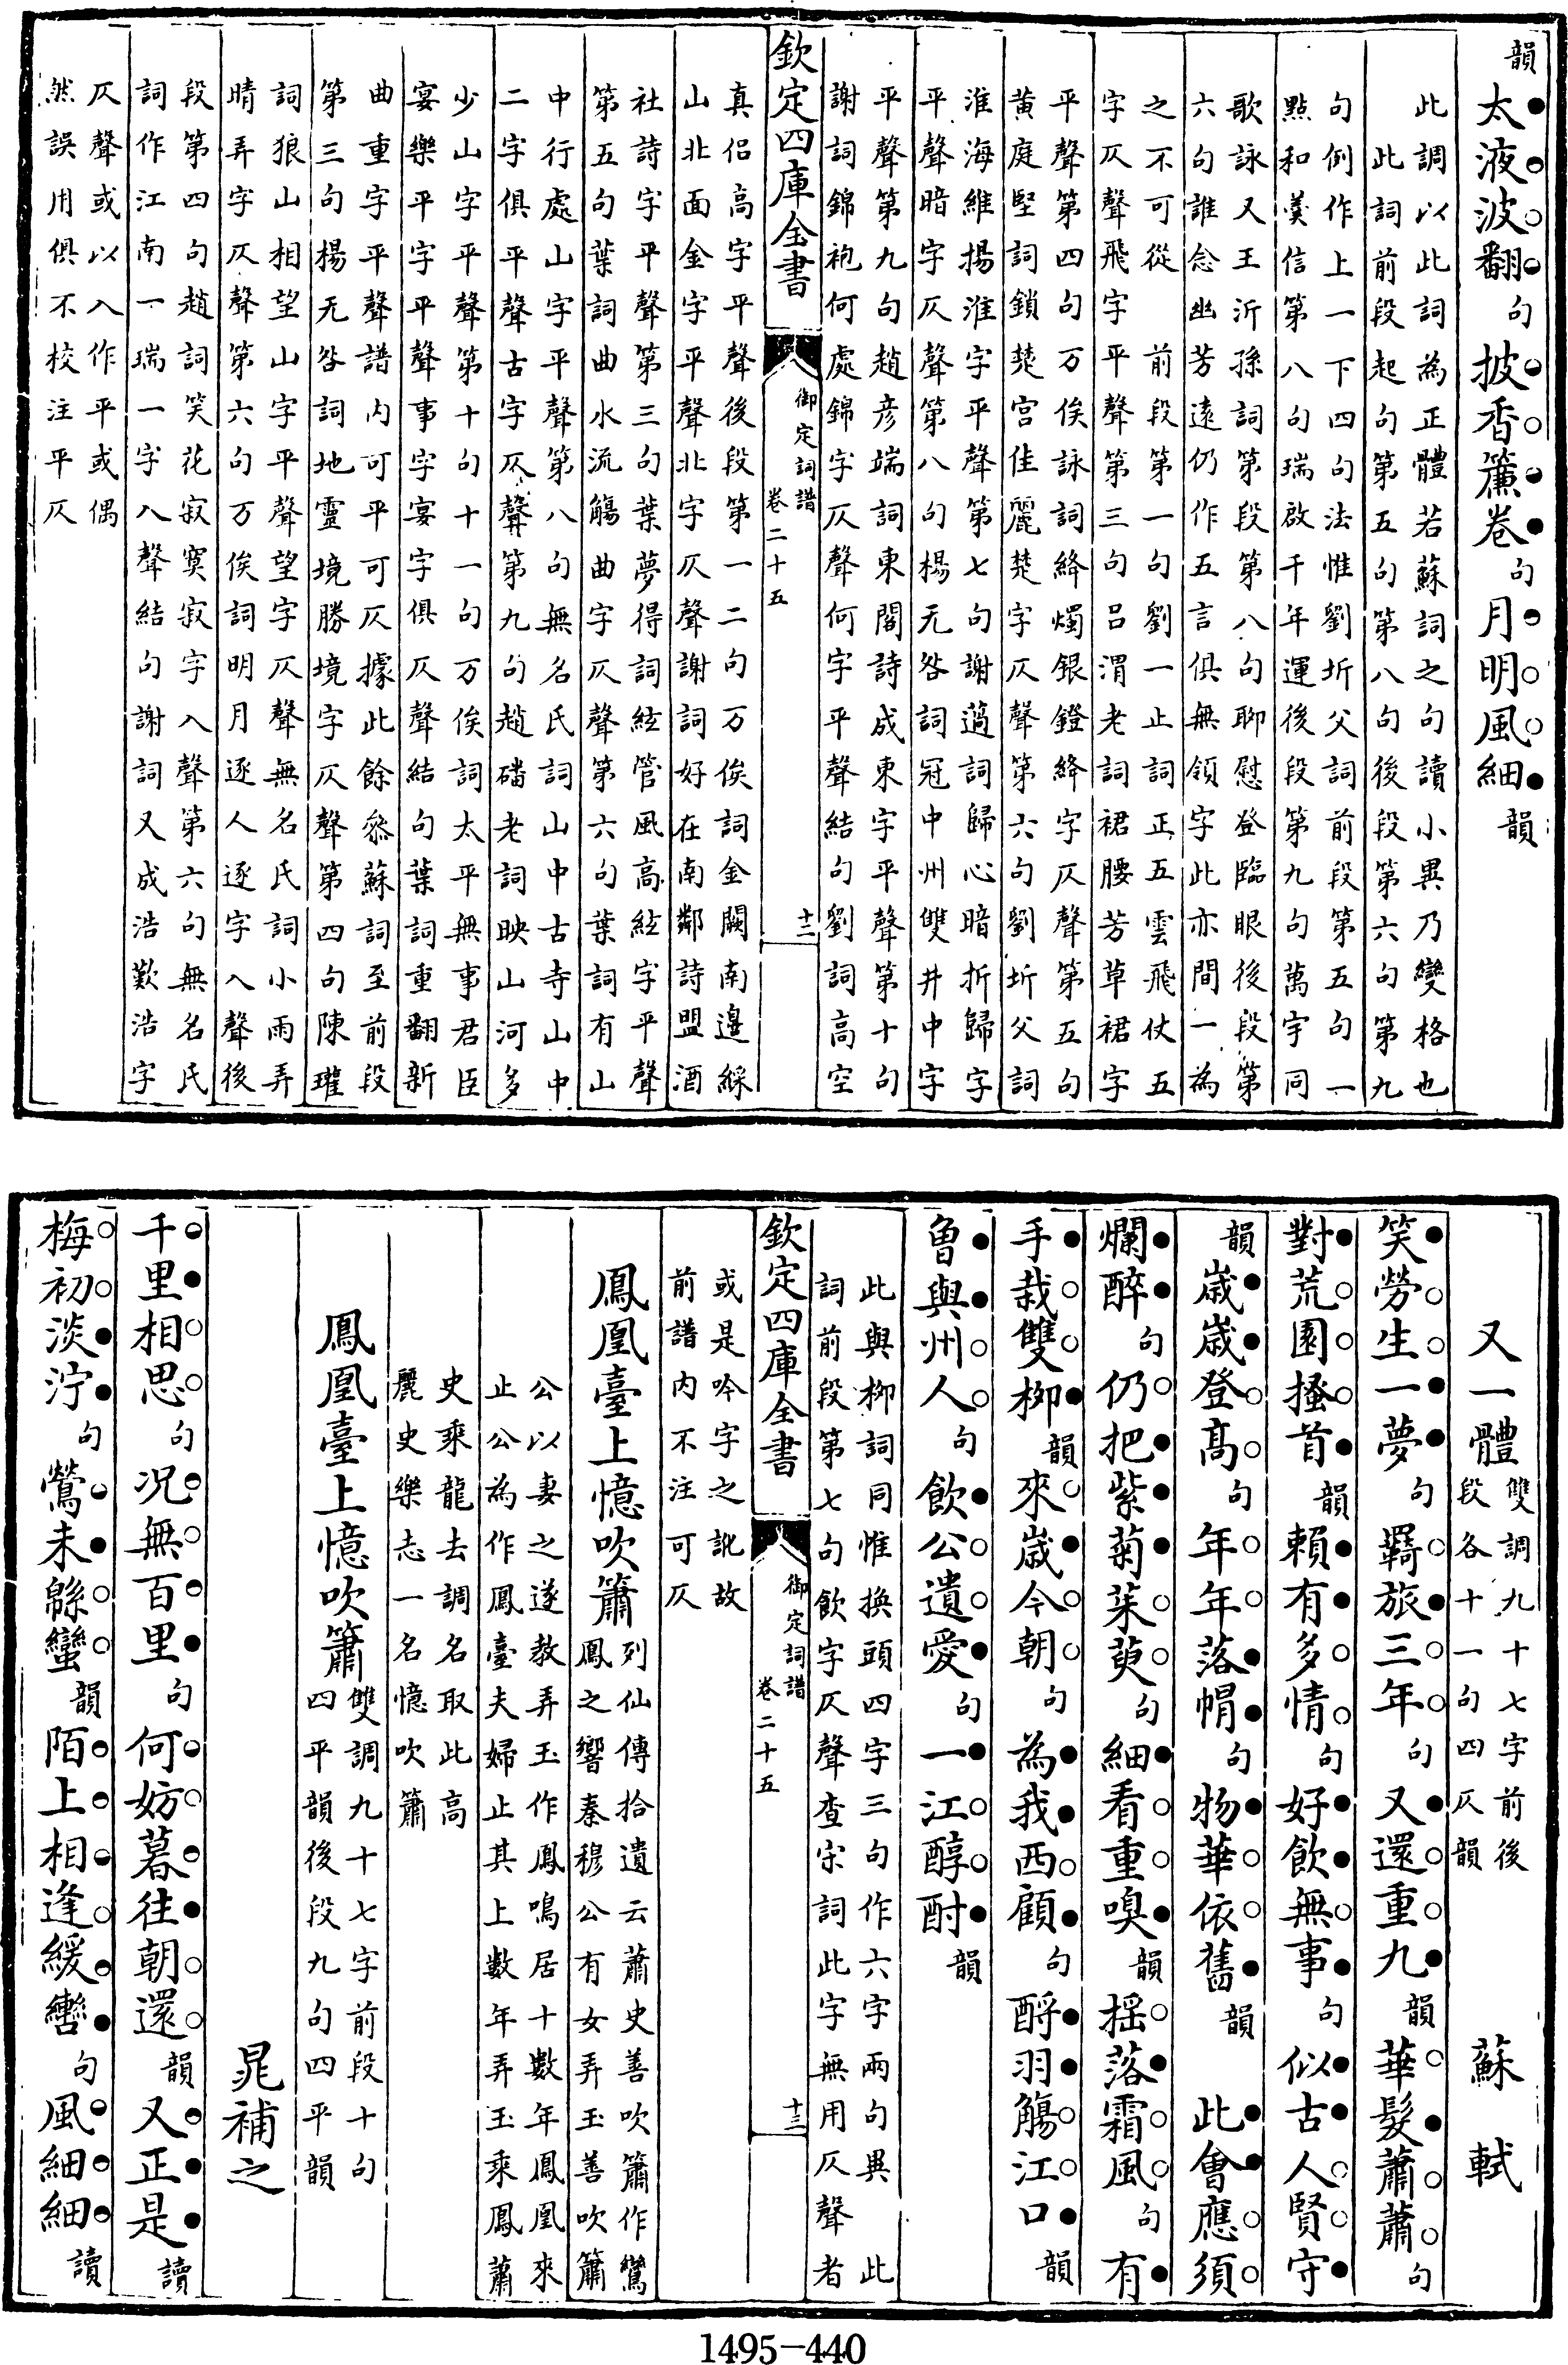 韻太液波翻句披香簾卷句月明風細韻
此調以此詞為正體若蘇詞之句讀小異乃變格也
此詞前段起句第五句第八句後段第六句第九
句倒作上一下四句法惟劉圻父詞前段第五句一
點和羹信第八句瑞啟千年運後段第九句萬宇同
歌詠又王沂孫詞第段第八句聊慰登臨眼後段第
六句誰念幽芳遠仍作五言俱無領字此亦間一為
之不可從　前段第一句劉一止詞正五雲飛仗五
字仄聲飛字平聲第三句呂渭老詞裙腰芳草裙字
平聲第四句万俟詠詞絳燭銀鐙絳字仄聲第五句
黃庭堅詞鎖楚宮佳麗楚字仄聲第六句劉圻父詞
淮海維揚淮字平聲第七句謝薖詞歸心暗折歸字
平聲暗字仄聲第八句楊无咎詞冠中州雙井中字
平聲第九句趙彥端詞東閣詩成東字平聲第十句
謝詞錦袍何處錦字仄聲何字平聲結句劉詞高空
欽定四庫全書
御定詞譜
卷二十五
十二
真侶高字平聲後段第一二句万俟詞金闕南邊綵
山北面金字平聲北字仄聲謝詞好在南鄰詩盟酒
社詩字平聲第三句葉夢得詞絃管風高絃字平聲
第五句葉詞曲水流觴曲字仄聲第六句葉詞有山
中行處山字平聲第八句無名氏詞山中古寺山中
二字俱平聲古字仄聲第九句趙磻老詞映山河多
少山字平聲第十句十一句万俟詞太平無事君臣
宴樂平字平聲事字宴字俱仄聲結句葉詞重翻新
曲重字平聲譜內可平可仄據此餘叅蘇詞至前段
第三句楊无咎詞地靈境勝境字仄聲第四句陳瓘
詞狼山相望山字平聲望字仄聲無名氏詞小雨弄
晴弄字仄聲第六句万俟詞明月逐人逐字入聲後
段第四句趙詞笑花寂寞寂字入聲第六句無名氏
詞作江南一瑞一字入聲結句謝詞又成浩歎浩字
仄聲或以入作平或偶
然誤用俱不校注平仄
又一體雙調九十七字前後
段各十一句四仄韻　蘇軾
笑勞生一夢句羇旅三年句又還重九韻華髮蕭蕭句
對荒園搔首韻賴有多情句好飲無事句似古人賢守
韻歲歲登高句年年落帽句物華依舊韻　此會應須
爛醉句仍把紫菊茱萸句細看重嗅韻搖落霜風句有
手栽雙柳韻來歲今朝句為我西顧句酹羽觴江口韻
魯與州人句飲公遺愛句一江醇酎韻
此與柳詞同惟換頭四字三句作六字兩句異　此
詞前段第七句飲字仄聲查宋詞此字無用仄聲者
欽定四庫全書
御定詞譜
卷二十五
十三
或是吟字之訛故
前譜內不注可仄
鳳凰臺上憶吹簫列仙傳拾遺云蕭史善吹簫作鸞
鳳之響秦穆公有女弄玉善吹簫
公以妻之遂教弄玉作鳳鳴居十數年鳳凰來
止公為作鳳臺夫婦止其上數年弄玉乘鳳蕭
史乘龍去調名取此高
麗史樂志一名憶吹簫
鳳凰臺上憶吹簫雙調九十七字前段十句
四平韻後段九句四平韻
晁補之
千里相思句况無百里句何妨暮往朝還韻又正是讀
梅初淡泞句鶯未緜蠻韻陌上相逢緩轡句風細細讀
1495-440